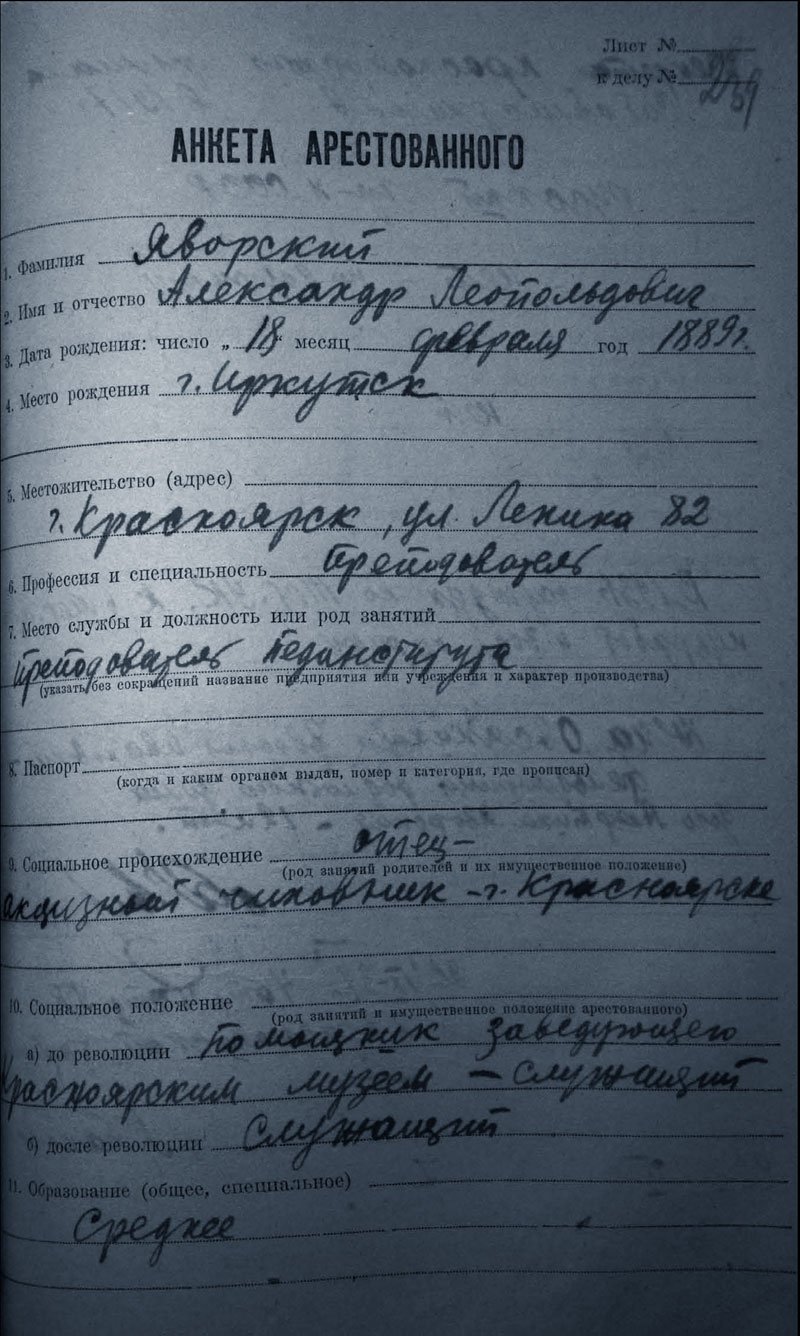 Лист №
к делу №
АНКЕТА АРЕСТОВАННОГО
1. Фамилия Яворский
2. Имя и отчество Александр Леопольдович
3. Дата рождения: число „18“ месяц февраля год 1889 г.
4. Место рождения г. Иркутск
5. Местожительство (адрес)
г. Красноярск, ул. Ленина 82
6. Профессия и специальность Преподователь
7. Место службы и должность или род занятий
Преподователь Пединститута
(указать без сокращений название предприятия или учреждения и характер производства)
8. Паспорт
(когда и каким органом выдан, номер и категория, где прописан)
9. Социальное происхождение отец –
(род занятий родителей и их имущественное положение)
акцизный чиновник – г. Красноярске
10. Социальное положение
(род занятий и имущественное положение арестованного)
а) до революции Помощник заведующего
Красноярским музеем – служащий
б) после революции Служащий
11. Образование (общее, специальное)
Среднее